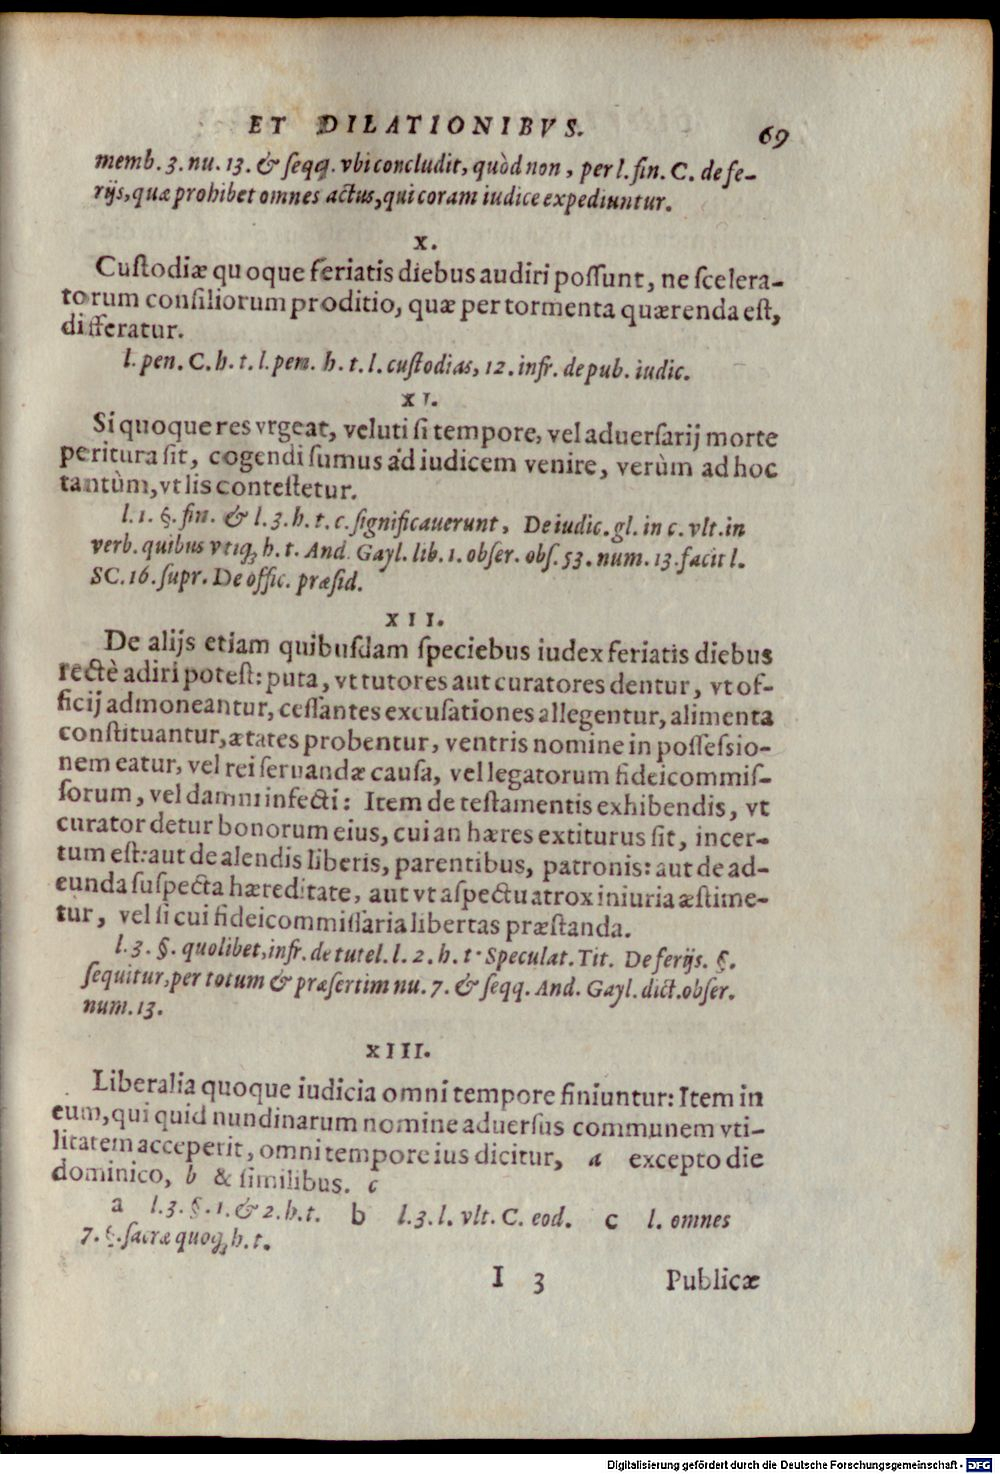 ET DILATIONIBVS. 69
memb. 3. nu. 13. & ſeqq. vbi concludit, quòd non, per l. fin. C. de fe-
rijs, quæ prohibet omnes actus, qui coram iudice expediuntur.
X.
Cuſtodiæ quoque feriatis diebus audiri poſſunt, ne ſcelera-
torum conſiliorum proditio, quæ per tormenta quærenda eſt,
differatur.
l. pen. C. h. t. l. pen. h. t. l. cuſtodias, 12. infr. de pub. iudic.
XI.
Si quoque res vrgeat, veluti ſi tempore, vel aduerſarij morte
peritura ſit, cogendi ſumus ad iudicem venire, verùm ad hoc
tantùm, vt lis conteſtetur.
l. 1. §. fin. & l. 3. h. t. c. ſignificauerunt, De iudic. gl. in c. vlt. in
verb. quibus vtiq; h. t. And. Gayl. lib. 1. obſer. obſ. 53. num. 13. facit l.
SC. 16. ſupr. De offic. præſid.
XII.
De alijs etiam quibuſdam ſpeciebus iudex feriatis diebus
rectè adiri poteſt: puta, vt tutores aut curatores dentur, vt of-
ficij admoneantur, ceſſantes excuſationes allegentur, alimenta
conſtituantur, ætates probentur, ventris nomine in poſſeſſio-
nem eatur, vel rei ſeruandæ cauſa, vel legatorum fideicommiſ-
ſorum, vel damni infecti: Item de teſtamentis exhibendis, vt
curator detur bonorum eius, cui an hæres extiturus ſit, incer-
tum eſt: aut de alendis liberis, parentibus, patronis: aut de ad-
eunda ſuſpecta hæreditate, aut vt aſpectu atrox iniuria æſtime-
tur, vel ſi cui fideicommiſſaria libertas præſtanda.
l. 3. §. quolibet, infr. de tutel. l. 2. h. t. Speculat. Tit. De ferijs. §.
ſequitur, per totum & præſertim nu. 7. & ſeqq. And. Gayl. dict. obſer.
num. 13.
XIII.
Liberalia quoque iudicia omni tempore finiuntur: Item in
eum, qui quid nundinarum nomine aduerſus communem vti-
litatem acceperit, omni tempore ius dicitur, a excepto die
dominico, b & ſimilibus. c
a l. 3. §. 1. & 2. h. t. b l. 3. l. vlt. C. eod. c l. omnes
7. §. ſacræ quoq; h. t.
I 3 Publicæ
Digitalisierung gefördert durch die Deutsche Forschungsgemeinschaft - DFG